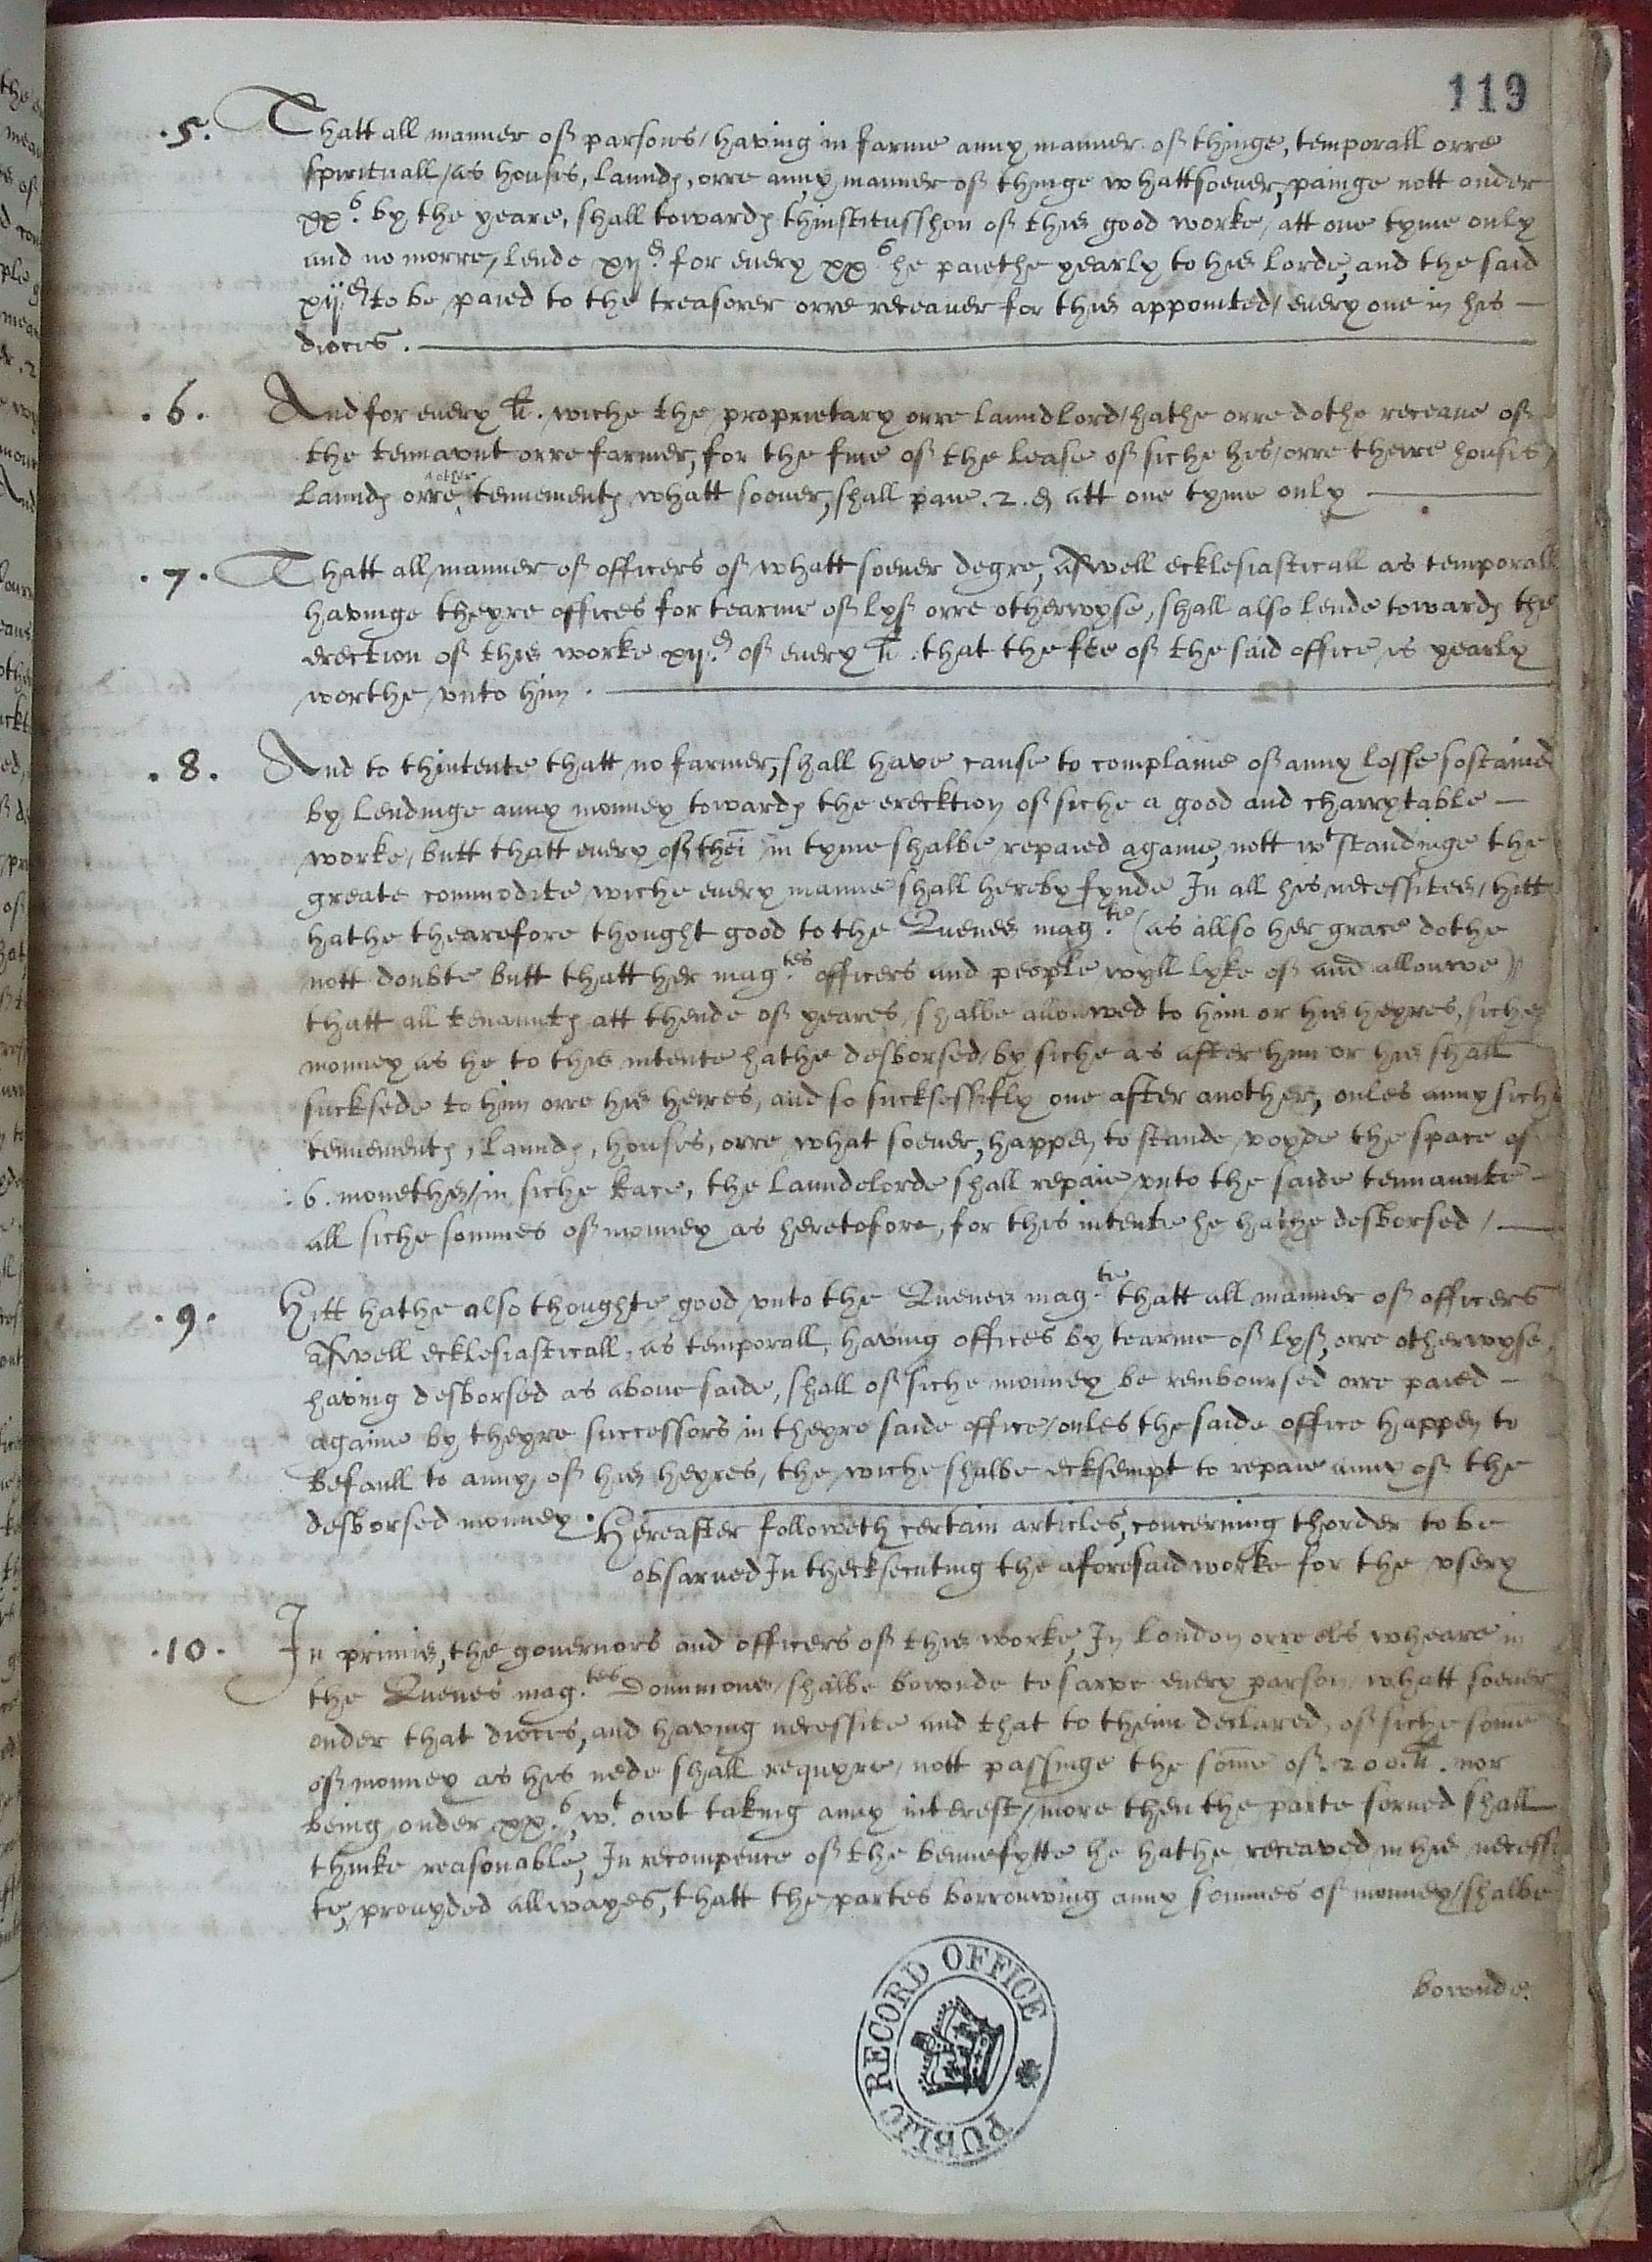 119
.5. Thatt all manner off parsons / having in farme anny manner off thinge, temporall orre
spirituall / as housis, launds, orre anny manner off thinge whattsoever, painge nott onder
xxs. by the yeare, shall towards thinstitusshon off this good worke / att one tyme only
and no morre, lende xijd. for every xxs he paiethe yearly to his lorde, and the said
xijd to be paied to the treasorer orre receaver for this appointed / every one in his —
diocis.
.6. And for every li. wiche the proprietary orre laundlord / hathe orre dothe receave off
the tennavnt orre farmer, for the fine off the lease off siche his / orre theire housis,
launds orre other tennements whatt soever, shall paye .2.d att one tyme only
.7. Thatt all manner off officers off whatt soever degre, Aswell ecklesiasticall as temporall
havinge theyre offices for tearme off lyff orre otherwyse, shall also lende towards the
erection off this worke xijd. off every li. that the fee off the said office is yearly
worthe vnto him.
.8. And to thintente thatt no farmer, shall have cause to complaine off anny losse sostained
by lendinge anny monney towards the erecktion off siche a good and charrytable —
worke / butt thatt every off theim in tyme shalbe repaied againe, nott wt standinge the
greate commodite wiche every manne shall hereby fynde In all his necessites / hitt
hathe thearefore thought good to the Quenes mag.te (as allso her grace dothe
nott doubte butt thatt her mag.tes officers and people wyll lyke off and allouwe)
thatt all tenaunts att thende off yeares, shalbe allouwed to him or his heyres, siche
monney as he to this intente hathe desborsed / by siche as after him or his shall
sucksede to him orre his heires, and so sucksessifly one after another, onles anny siche
tennements, launds, houses, orre what soever, happen to stande voyde the space of
.6. monethes / in siche kace, the laundelorde shall repaie vnto the saide tennaunte —
all siche sommes off monney as heretofore, for this intente he hathe desborsed / —
.9. Hitt hathe also thoughte good vnto the Quenes mag.te thatt all manner off officers
Aswell ecklesiasticall, as temporall, having offices by tearme off lyff, orre otherwyse,
having desborsed as above saide, shall off siche monney be remboursed orre paied —
againe by theyre successors in theyre saide office / onles the saide office happen to
befaull to anny off his heyres, the wiche shalbe ecksempt to repaie anny off the
desborsed monney.
Hereafter followeth certain articles, concerning thorder to be
obsarved In thecksecuting the aforesaid worke for the vsery
.10. In primis, the governors and officers off this worke, In london orre els wheare in
the Quenes mag.tes Dommions / shalbe bownde to sarve every parson whatt soever
onder that diocis, and having necessite and that to theim declared, off siche some
off monney as his nede shall requyre / nott passinge the some off .200.li. nor
being onder xxs., wt. owt taking anny interest / more then the parte served shall
thinke reasonable, In recompence off the bennefytte he hathe receaved in his necessi
te, provyded allwayes, thatt the partes borrouwing anny sommes off monney / shalbe
bownde.
PUBLIC RECORD OFFICE